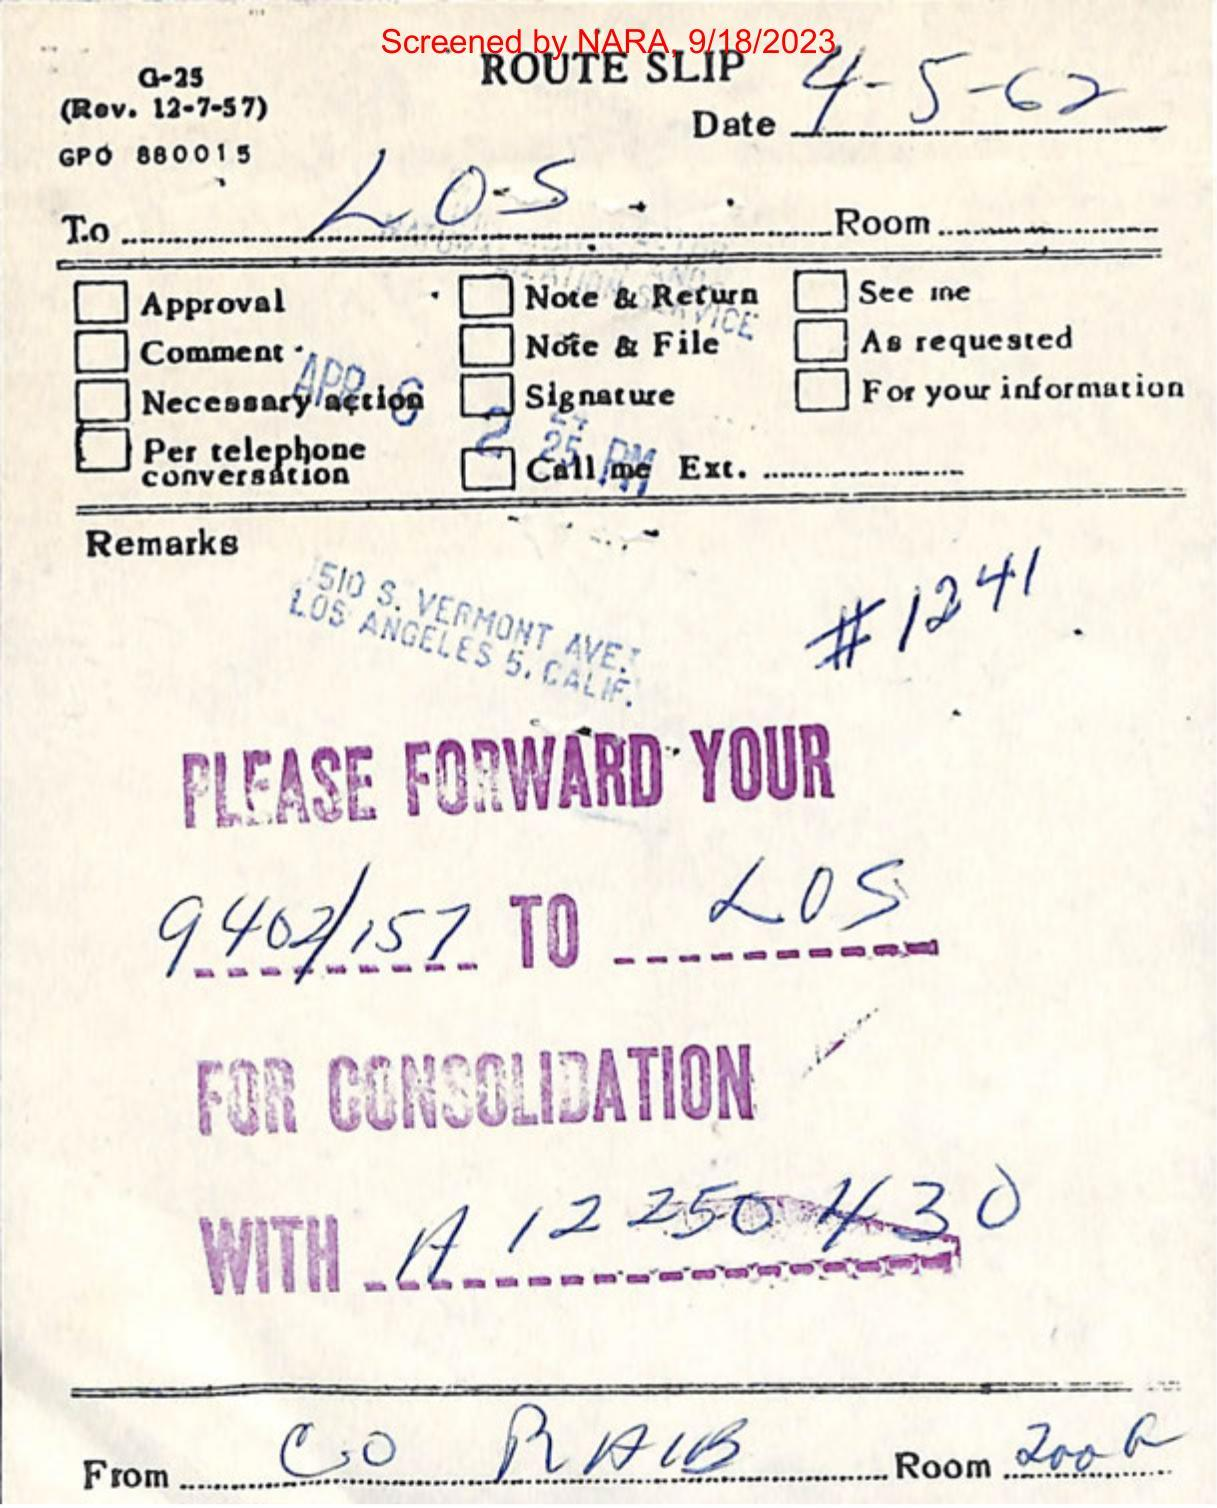 Screened by NARA, 9/18/2023
G-25
(Rev. 12-7-57)
GPO 880015
ROUTE SLIP
Date 4-5-62
To LOS Room
Approval
Comment
Necessary action
Per telephone
conversation
Note & Return
Note & File
Signature
Call me Ext.
See me
As requested
For your information
SERVICE
APR 6
2 25 PM
Remarks
510 S. VERMONT AVE.
LOS ANGELES 5, CALIF.
#1241
PLEASE FORWARD YOUR
9402/157 TO LOS
FOR CONSOLIDATION
WITH A 12 250 430
From CO RAIB Room